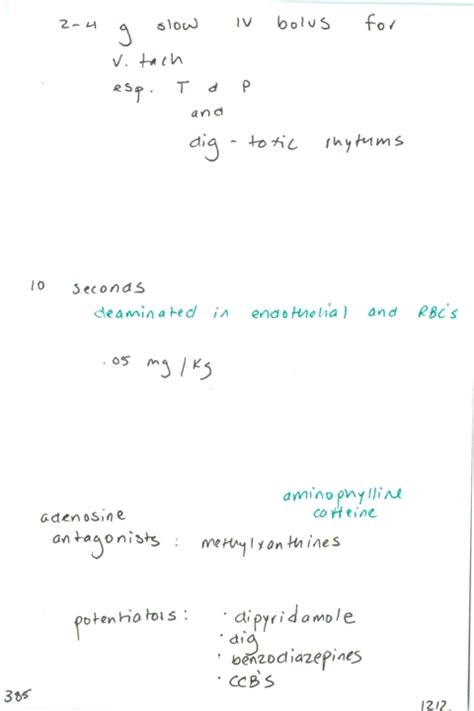 2-4 g slow IV bolus for
V. tach
esp. T d P
and
dig - toxic rhythms
10 seconds
deaminated in endothelial and RBC's
.05 mg/Kg
aminophylline
caffeine
adenosine
antagonists : methylxanthines
potentiators : · dipyridamole
· dig
· benzodiazepines
· CCB's
385
1212.